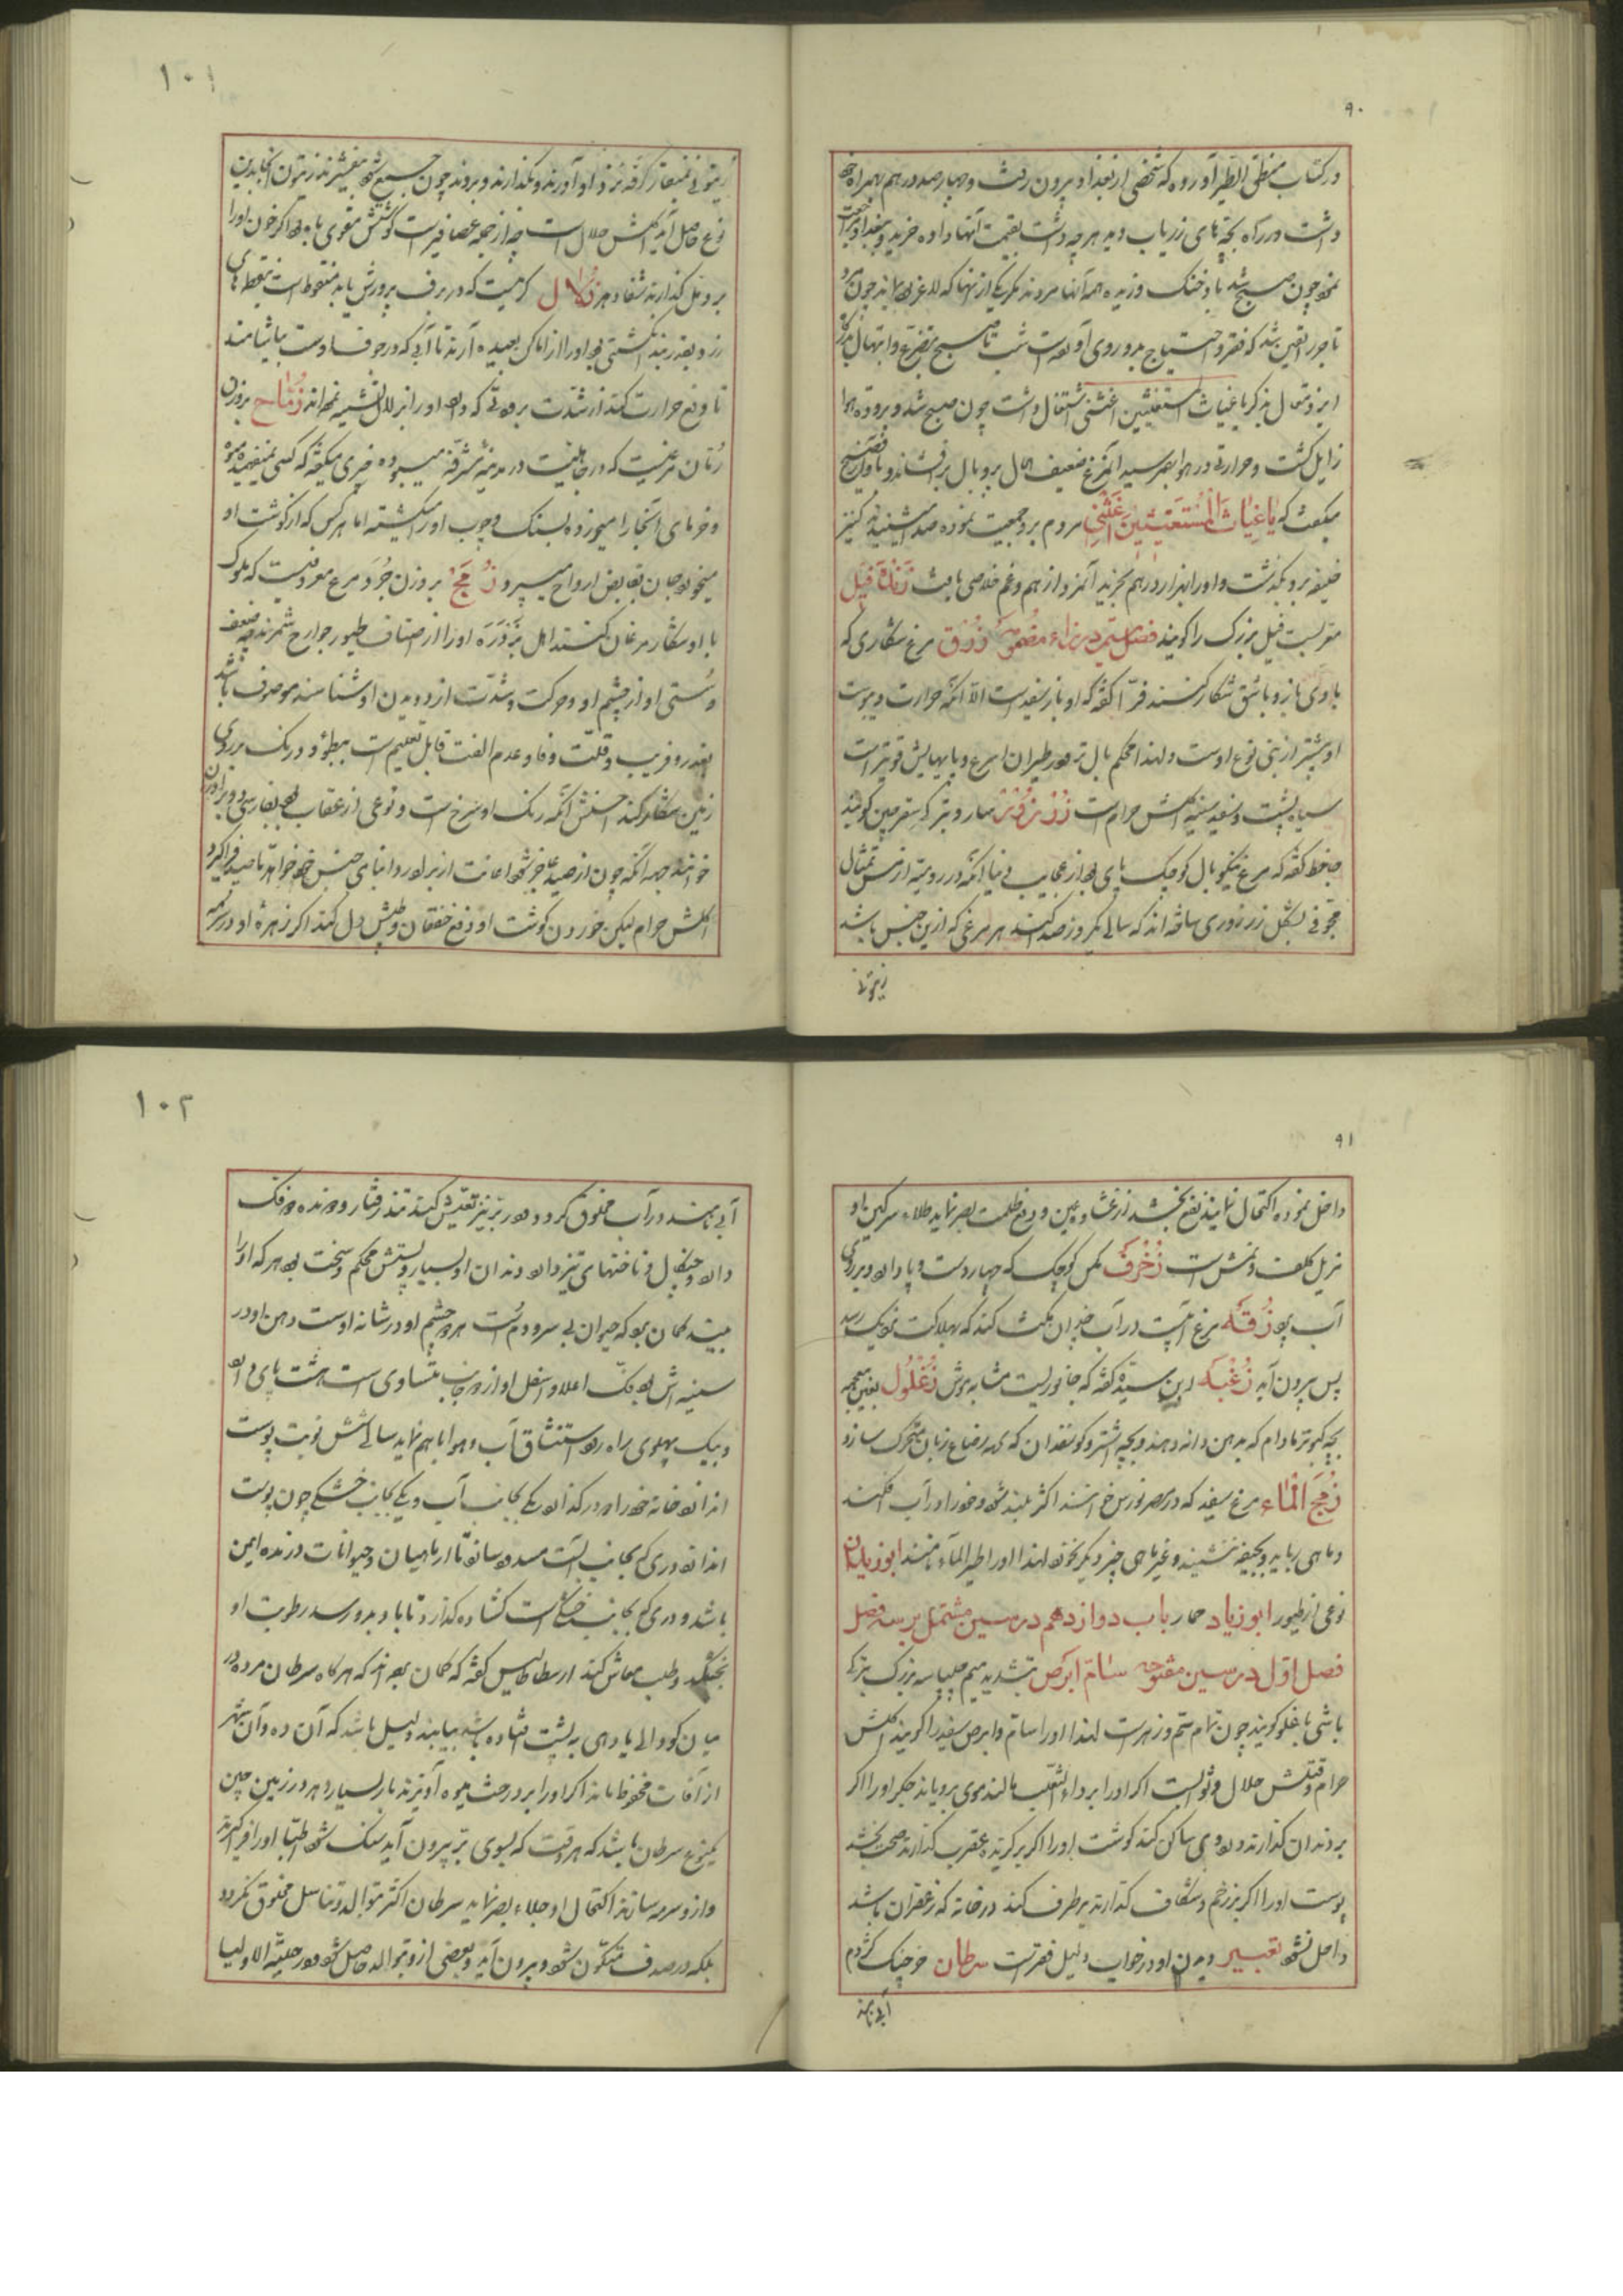 ۹۰
در کتاب منطق الطیر آورده که شخصی از بغداد بیرون رفت و چهار صد درهم همراه خود
داشت در راه بچهٔای زریاب دید هر چه داشت بقیمت آنها داده خرید و ببغداد مراجعت
نمود چون صبح شد باد خنک وزیده همه آنها مردند مگر یکی از آنها که لاغر
تاجر را یقین شد که فقر و احتیاج بدو روی آورده است شب تا صبح بتضرع و ابتهال
ایزد متعال بذکر یا غیاث المستغیثین اغثنی اشتغال داشت چون صبح شد و برودت هوا
زایل گشت و حرارتی در هوا بهم رسید آن مرغ ضعیف حال پر و بال بر افشاند و بآواز فصیح
میگفت که یا غیاث المستغیثین اغثنی مردم برو جمعیت نموده صدا میشنیدند کنیز
خلیفه برو بگذشت و او را بهزار درهم بخرید آنمرد از هم و غم خلاصی یافت زنده فیل
معربست فیل بزرگ را گویند فصل سیم در زاء مضمومه زرق مرغ شکاری که
با وی باز و باشق شکار کنند فرّا گفته که او باز سفید است الا آنکه حرارت و یبوست
او بیشتر از بنی نوع اوست و لهذا محکم بال‌تر و در طیران اسرع و پایهایش قویتر است
سیاه پشت و سفید سینه اکلش حرام است زرزور سار و بترکی سغرجین گویند
جاحظ گفته که مرغ نیکو بال کوچک پای بود از عجایب دنیا آنکه در رومیه از مس تمثال
مجوفی بشکل زرزوری ساخته اند که سالی یکروز صدا کند هر مرغی که ازین جنس باشد
زیتونی
۱۰۱
زیتونی بمنقار گرفته نزد او آورند و بگذارند و بروند چون جمع شود بیفشرند زیتون آنجا بدین
نوع حاصل آید اکلش حلال است چه از جمله عصافیر است گوشتش مقوی باه بود اگر خون او را
بر دمل گذارند شفا دهد زلال کرمیست که در برف پرورش یابد منقوط است بنقطهای
زرد بقدر بند انگشتی بود او را از اماکن بعیده آرند تا آبی که در جوف اوست بیاشامند
تا دفع حرارت کند از شدت برودتی که دارد او را بزلال تشبیه نموده اند زمّاح بر وزن
رمّان مرغیست که در جاهلیت در مدینه مشرفه میبوده چیزی میگفته که کسی نمیفهمیده
و خرمای آنجا را میخورده بسنگ و چوب او را میکشته اما هر کس که از گوشت او
میخورد جان بقابض ارواح میسپرد زمّج بر وزن جرد مرغ معروفیست که ملوک
با او شکار مرغان کنند اهل بزدره او را از اصناف طیور جوارح شمرند چه ضعف
و سستی او از چشم او و حرکت و شدّت از دویدن او شناسند موصوف باشد
بغدر و فریب و قلّت وفا و عدم الفت قابل تعلیم است ببطؤ و درنگ بر روی
زمین شکار کند احسنش آنکه رنگ او سرخ است و نوعی از عقاب بود بفارسی دو برادران
خوانند جهه آنکه چون از صید عاجز شود اعانت از برادر و ابنای جنس خود خواهد تا صید فرا گیرد
اکلش حرام لیکن خوردن گوشت او دفع خفقان و طپش دل کند اگر زهره او در سرمه
۹۱
داخل نموده اکتحال نمایند نفع بخشد از غشاوه عین و دفع ظلمت بصر نماید طلاء سرگین او
مزیل کلف و نمش است زخرف مگس کوچک که چهار دست و پا دارد و بر روی
آب بود زقه مرغ آبیست در آب چندان مکث کند که بهلاکت نزدیک رسد
پس بیرون آید زغبه ابن سیده گفته که جانوریست مشابه موش زغلول بغین معجمه
بچه کبوتر مادام که بدهن دانه دهند و بچه شتر و گوسفندان که گاه رضاع زبان متحرک سازد
زمج الماء مرغ سفید که در مصر نورس خوانند اکثر بلند شود و خود را در آب افکند
و ماهی رباید و بجیفه ننشیند و غیر ماهی چیز دیگر نخورد لهذا او را طیر الماء نامند ابو زیدان
نوعی از طیور ابو زیاد حمار باب دوازدهم در سین مشتمل بر سه فصل
فصل اوّل در سین مفتوحه سامّ ابرص بتشدید میم چلپاسه بزرگ بترکی
باشی باغلو گویند چون تمام سم و زهر است لهذا او را سام و ابرص سفید را گویند اکلش
حرام و قتلش حلال و ثوابست اگر او را بر داء الثعلب مالند موی برویاند جگر او را اگر
بر دندان گذارند درد وی ساکن کند گوشت او را اگر بر گزیده عقرب گذارند صحت بخشد
پوست او را اگر بر زخم و شکاف گذارند بر طرف کند در خانه که زعفران باشد
داخل نشود تعبیر دیدن او در خواب دلیل فقر است سرطان خرچنگ کژدم
آبی نامند
۱۰۲
آبی نامند در آب مخلوق گردد و در بر نیز تعیش کند تند رفتار و درنده و دو فک
دارد و چنگال و ناخنهای تیز دارد دندان او بسیار و پشتش محکم و سخت بود هر که او را
بیند گمان برد که حیوان بی سر و دم است هر دو چشم او در شانه اوست دهن او در
سینه اش بود فک اعلا و اسفل او از هر دو جانب متساوی است هشت پای دارد
و بیک پهلوی راه رود استنشاق آب و هوا با هم نماید سالی شش نوبت پوست
اندازد خانه خود را دو در گذارد یکی بجانب آب و یکی بجانب خشکی چون پوست
اندازد دری که بجانب آبست مسدود سازد تا از ماهیان و حیوانات درنده ایمن
باشد و دری که بجانب خشکی است گشاده گذارد تا باد بدو رسد رطوبت او
بخشکد و طلب معاش کند ارسطاطالیس گفته که گمان برده اند که هرگاه سرطان مرده در
میان گودالی یا دهی به پشت افتاده باشد بیابند دلیل باشد که آن ده و آن شهر
از آفات محفوظ ماند اگر او را بر درخت میوه آویزند بار بسیار دهد و در زمین چین
یکنوع سرطان باشد که هر وقت که بسوی بر بیرون آید سنگ شود اطبّا او را فرا گیرند
و ازو سرمه سازند اکتحال او جلاء بصر نماید سرطان اکثر بتوالد و تناسل مخلوق نگردد
بلکه در صدف متکوّن شود و بیرون آید و بعضی از او بتوالد حاصل شود در حلیة الاولیا